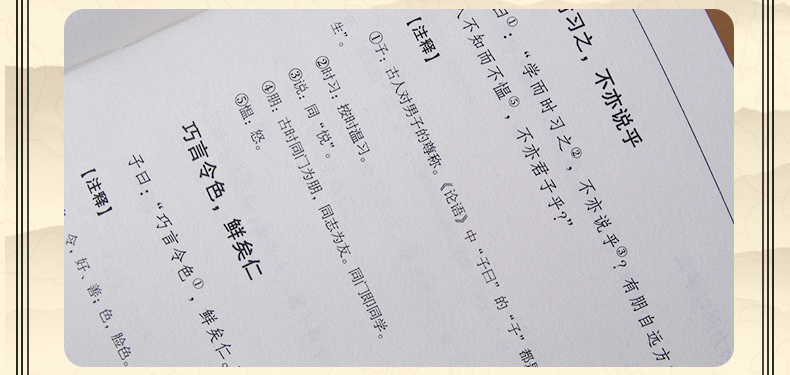 习之，不亦说乎
曰①：“学而时习之②，不亦说乎③？有朋自远方
人不知而不愠⑤，不亦君子乎？”
【注释】
①子：古人对男子的尊称。《论语》中“子曰”的“子”都是
生”。
②时习：按时温习。
③说：同“悦”。
④朋：古时同门为朋，同志为友。同门即同学。
⑤愠：怒。
巧言令色，鲜矣仁
子曰：“巧言令色①，鲜矣仁。
【注释】
好、善；色，脸色。